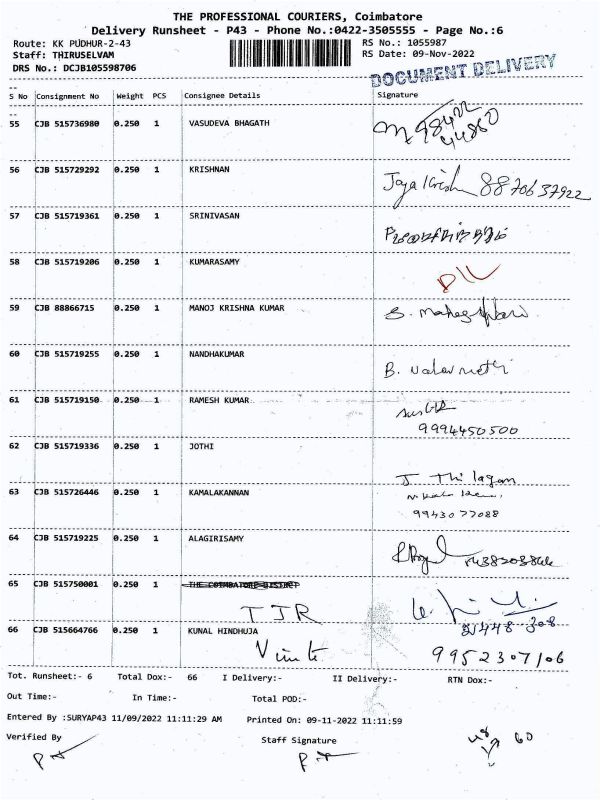 THE PROFESSIONAL COURIERS, Coimbatore
Delivery Runsheet - P43 - Phone No.:0422-3505555 - Page No.:6
Route: KK PUDHUR-2-43 RS No.: 1055987
Staff: THIRUSELVAM RS Date: 09-Nov-2022
DRS No.: DCJB105598706
DOCUMENT DELIVERY
S No Consignment No Weight PCS Consignee Details Signature
55 CJB 515736980 0.250 1 VASUDEVA BHAGATH
56 CJB 515729292 0.250 1 KRISHNAN
Jaya Krish 8870637922
57 CJB 515719361 0.250 1 SRINIVASAN
58 CJB 515719206 0.250 1 KUMARASAMY
59 CJB 88866715 0.250 1 MANOJ KRISHNA KUMAR
60 CJB 515719255 0.250 1 NANDHAKUMAR
61 CJB 515719150 0.250 1 RAMESH KUMAR
9994450500
62 CJB 515719336 0.250 1 JOTHI
J. Thilagam
63 CJB 515726446 0.250 1 KAMALAKANNAN
9943077088
64 CJB 515719225 0.250 1 ALAGIRISAMY
65 CJB 515750001 0.250 1 THE COIMBATORE DISTRICT
TJR
66 CJB 515664766 0.250 1 KUNAL HINDHUJA
9952307106
Tot. Runsheet:- 6 Total Dox:- 66 I Delivery:- II Delivery:- RTN Dox:-
Out Time:- In Time:- Total POD:-
Entered By :SURYAP43 11/09/2022 11:11:29 AM Printed On: 09-11-2022 11:11:59
Verified By Staff Signature
60